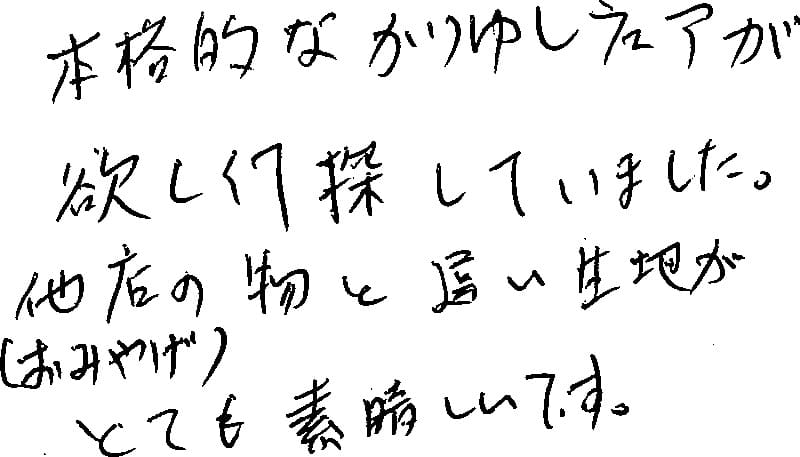 本格的なかりゆしウェアが
欲しくて探していました。
他店の物と違い生地が
(おみやげ)
とても素晴しいです。